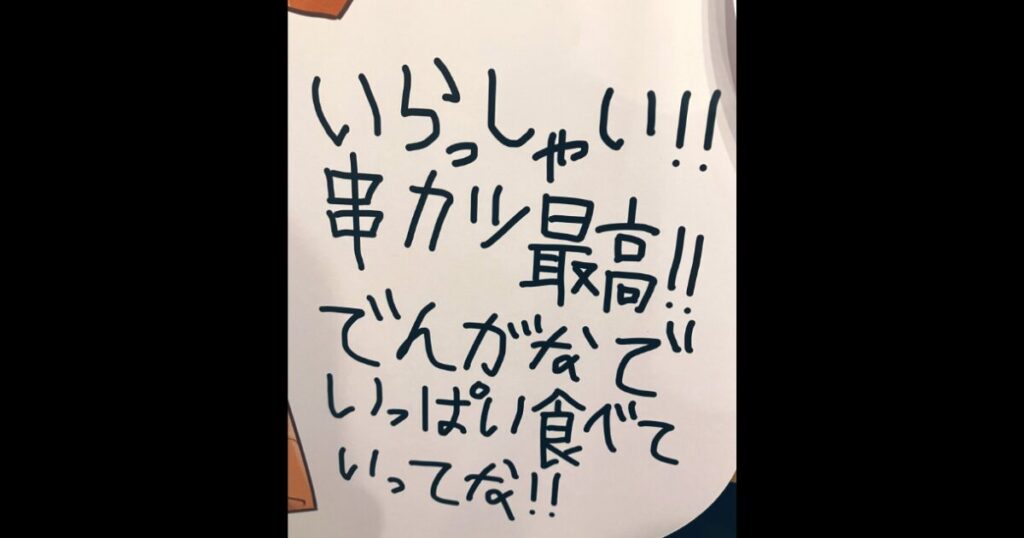 いらっしゃい!!
串カツ最高!!
でんがなで
いっぱい食べて
いってな!!